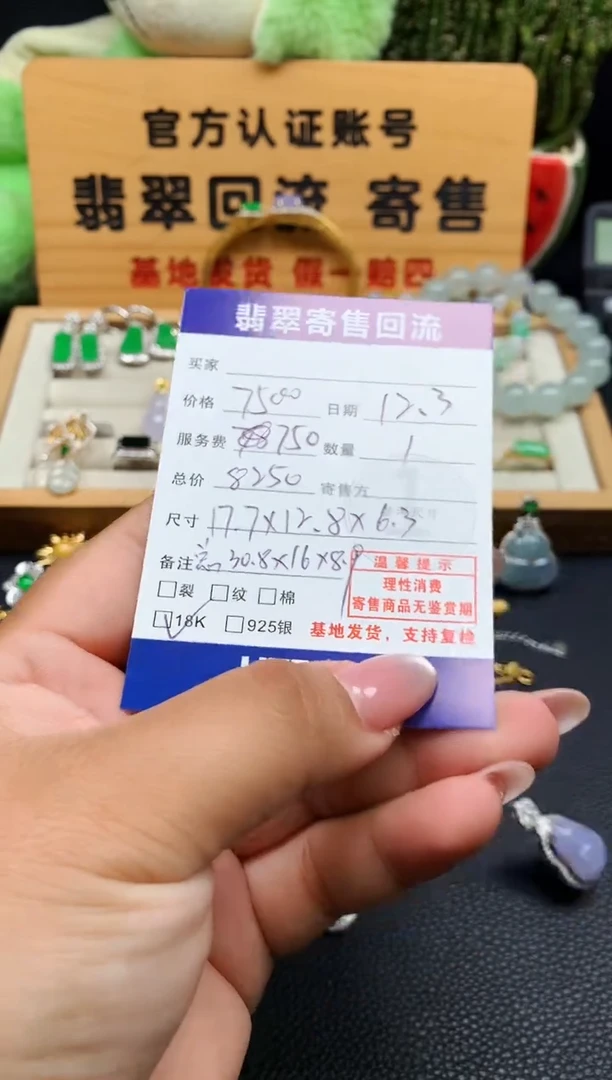 官方认证账号
翡翠回流 寄售
基地发货 假一赔四
翡翠寄售回流
买家
价格 7500 日期 12.3
服务费 750 数量 1
总价 8250 寄售方
尺寸 17.7X12.8X6.3
备注 总 30.8X16X8.9
温馨提示
理性消费
寄售商品无鉴赏期
裂 纹 棉
18K 925银
基地发货，支持复检